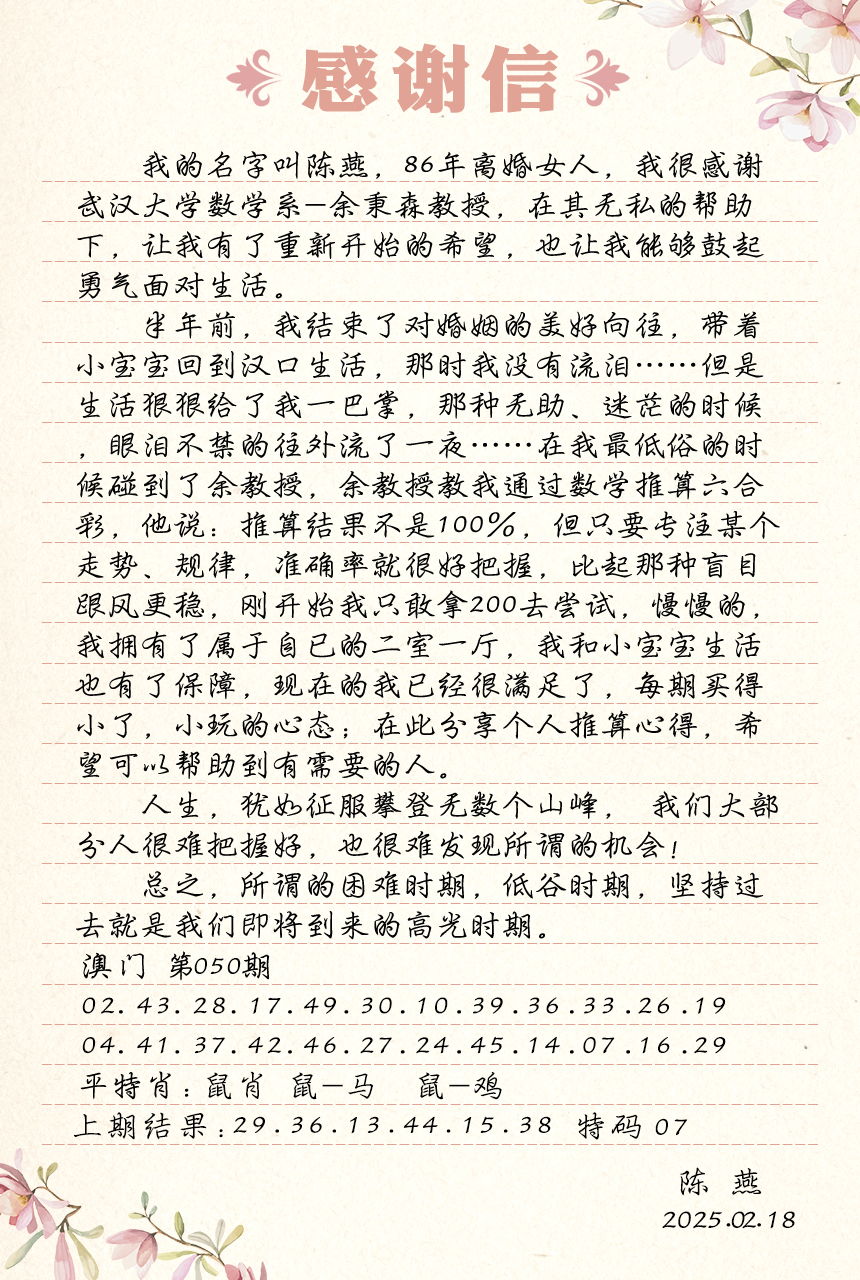 感谢信
我的名字叫陈燕，86年离婚女人，我很感谢
武汉大学数学系—余秉森教授，在其无私的帮助
下，让我有了重新开始的希望，也让我能够鼓起
勇气面对生活。
半年前，我结束了对婚姻的美好向往，带着
小宝宝回到汉口生活，那时我没有流泪……但是
生活狠狠给了我一巴掌，那种无助、迷茫的时候
，眼泪不禁的往外流了一夜……在我最低俗的时
候碰到了余教授，余教授教我通过数学推算六合
彩，他说：推算结果不是100%，但只要专注某个
走势、规律，准确率就很好把握，比起那种盲目
跟风更稳，刚开始我只敢拿200去尝试，慢慢的，
我拥有了属于自已的二室一厅，我和小宝宝生活
也有了保障，现在的我已经很满足了，每期买得
小了，小玩的心态；在此分享个人推算心得，希
望可以帮助到有需要的人。
人生，犹如征服攀登无数个山峰， 我们大部
分人很难把握好，也很难发现所谓的机会！
总之，所谓的困难时期，低谷时期，坚持过
去就是我们即将到来的高光时期。
澳门 第050期
02.43.28.17.49.30.10.39.36.33.26.19
04.41.37.42.46.27.24.45.14.07.16.29
平特肖：鼠肖 鼠—马 鼠—鸡
上期结果：29.36.13.44.15.38 特码 07
陈 燕
2025.02.18